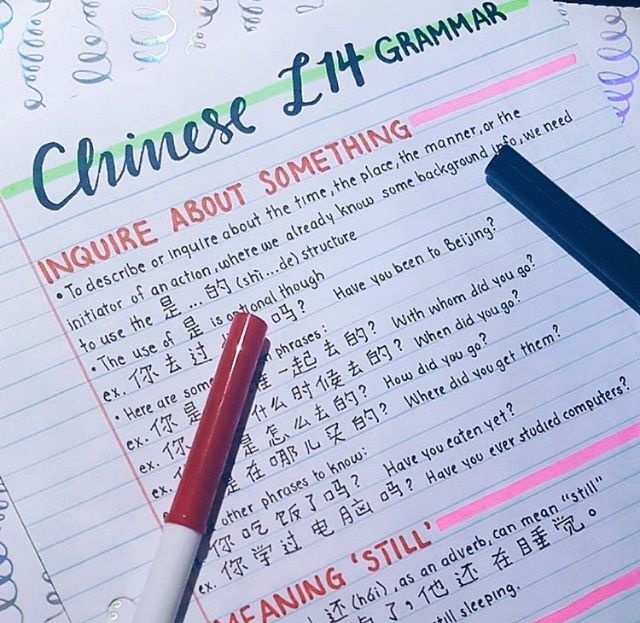 Chinese L14 GRAMMAR
INQUIRE ABOUT SOMETHING
• To describe or inquire about the time, the place, the manner, or the
initiator of an action, where we already know some background info, we need
to use the 是...的 (shì...de) structure
• The use of 是 is optional though
ex. 你去过 吗? Have you been to Beijing?
• Here are some phrases:
ex. 你是 一起去的? With whom did you go?
ex. 你 什么时候去的? When did you go?
ex. 是怎么去的? How did you go?
是在哪儿买的? Where did you get them?
other phrases to know:
你吃饭了吗? Have you eaten yet?
ex. 你学过电脑吗? Have you ever studied computers?
MEANING 'STILL'
还 (hái), as an adverb, can mean "still"
点了,他还在睡觉。
still sleeping.